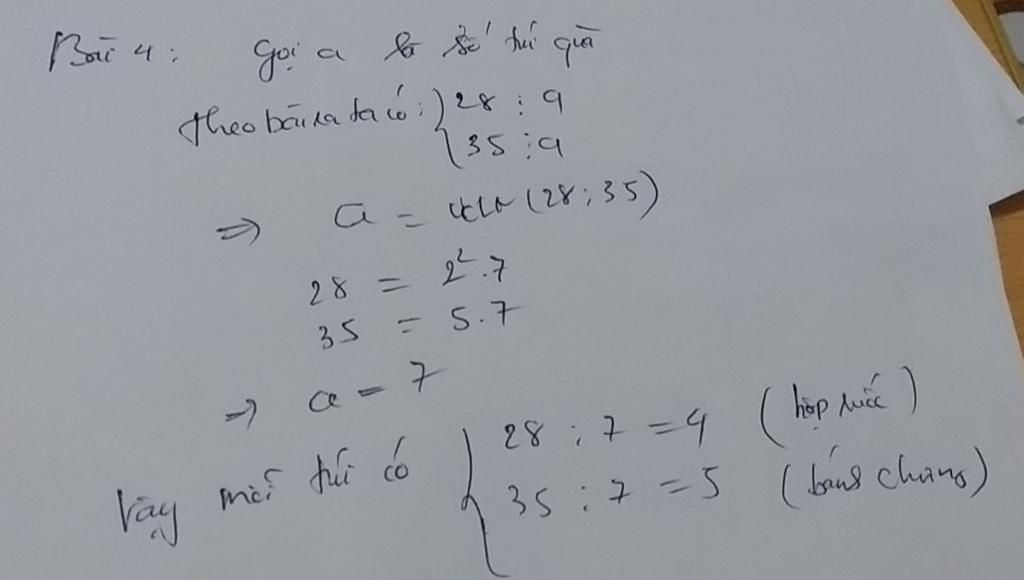 Bài 4: Gọi a là số túi quà
Theo bài ra ta có: { 28 : a
35 : a
⇒ a = ƯCLN (28; 35)
28 = 2².7
35 = 5.7
⇒ a = 7
Vậy mỗi túi có { 28 : 7 = 4 (hộp mứt)
35 : 7 = 5 (bánh chưng)